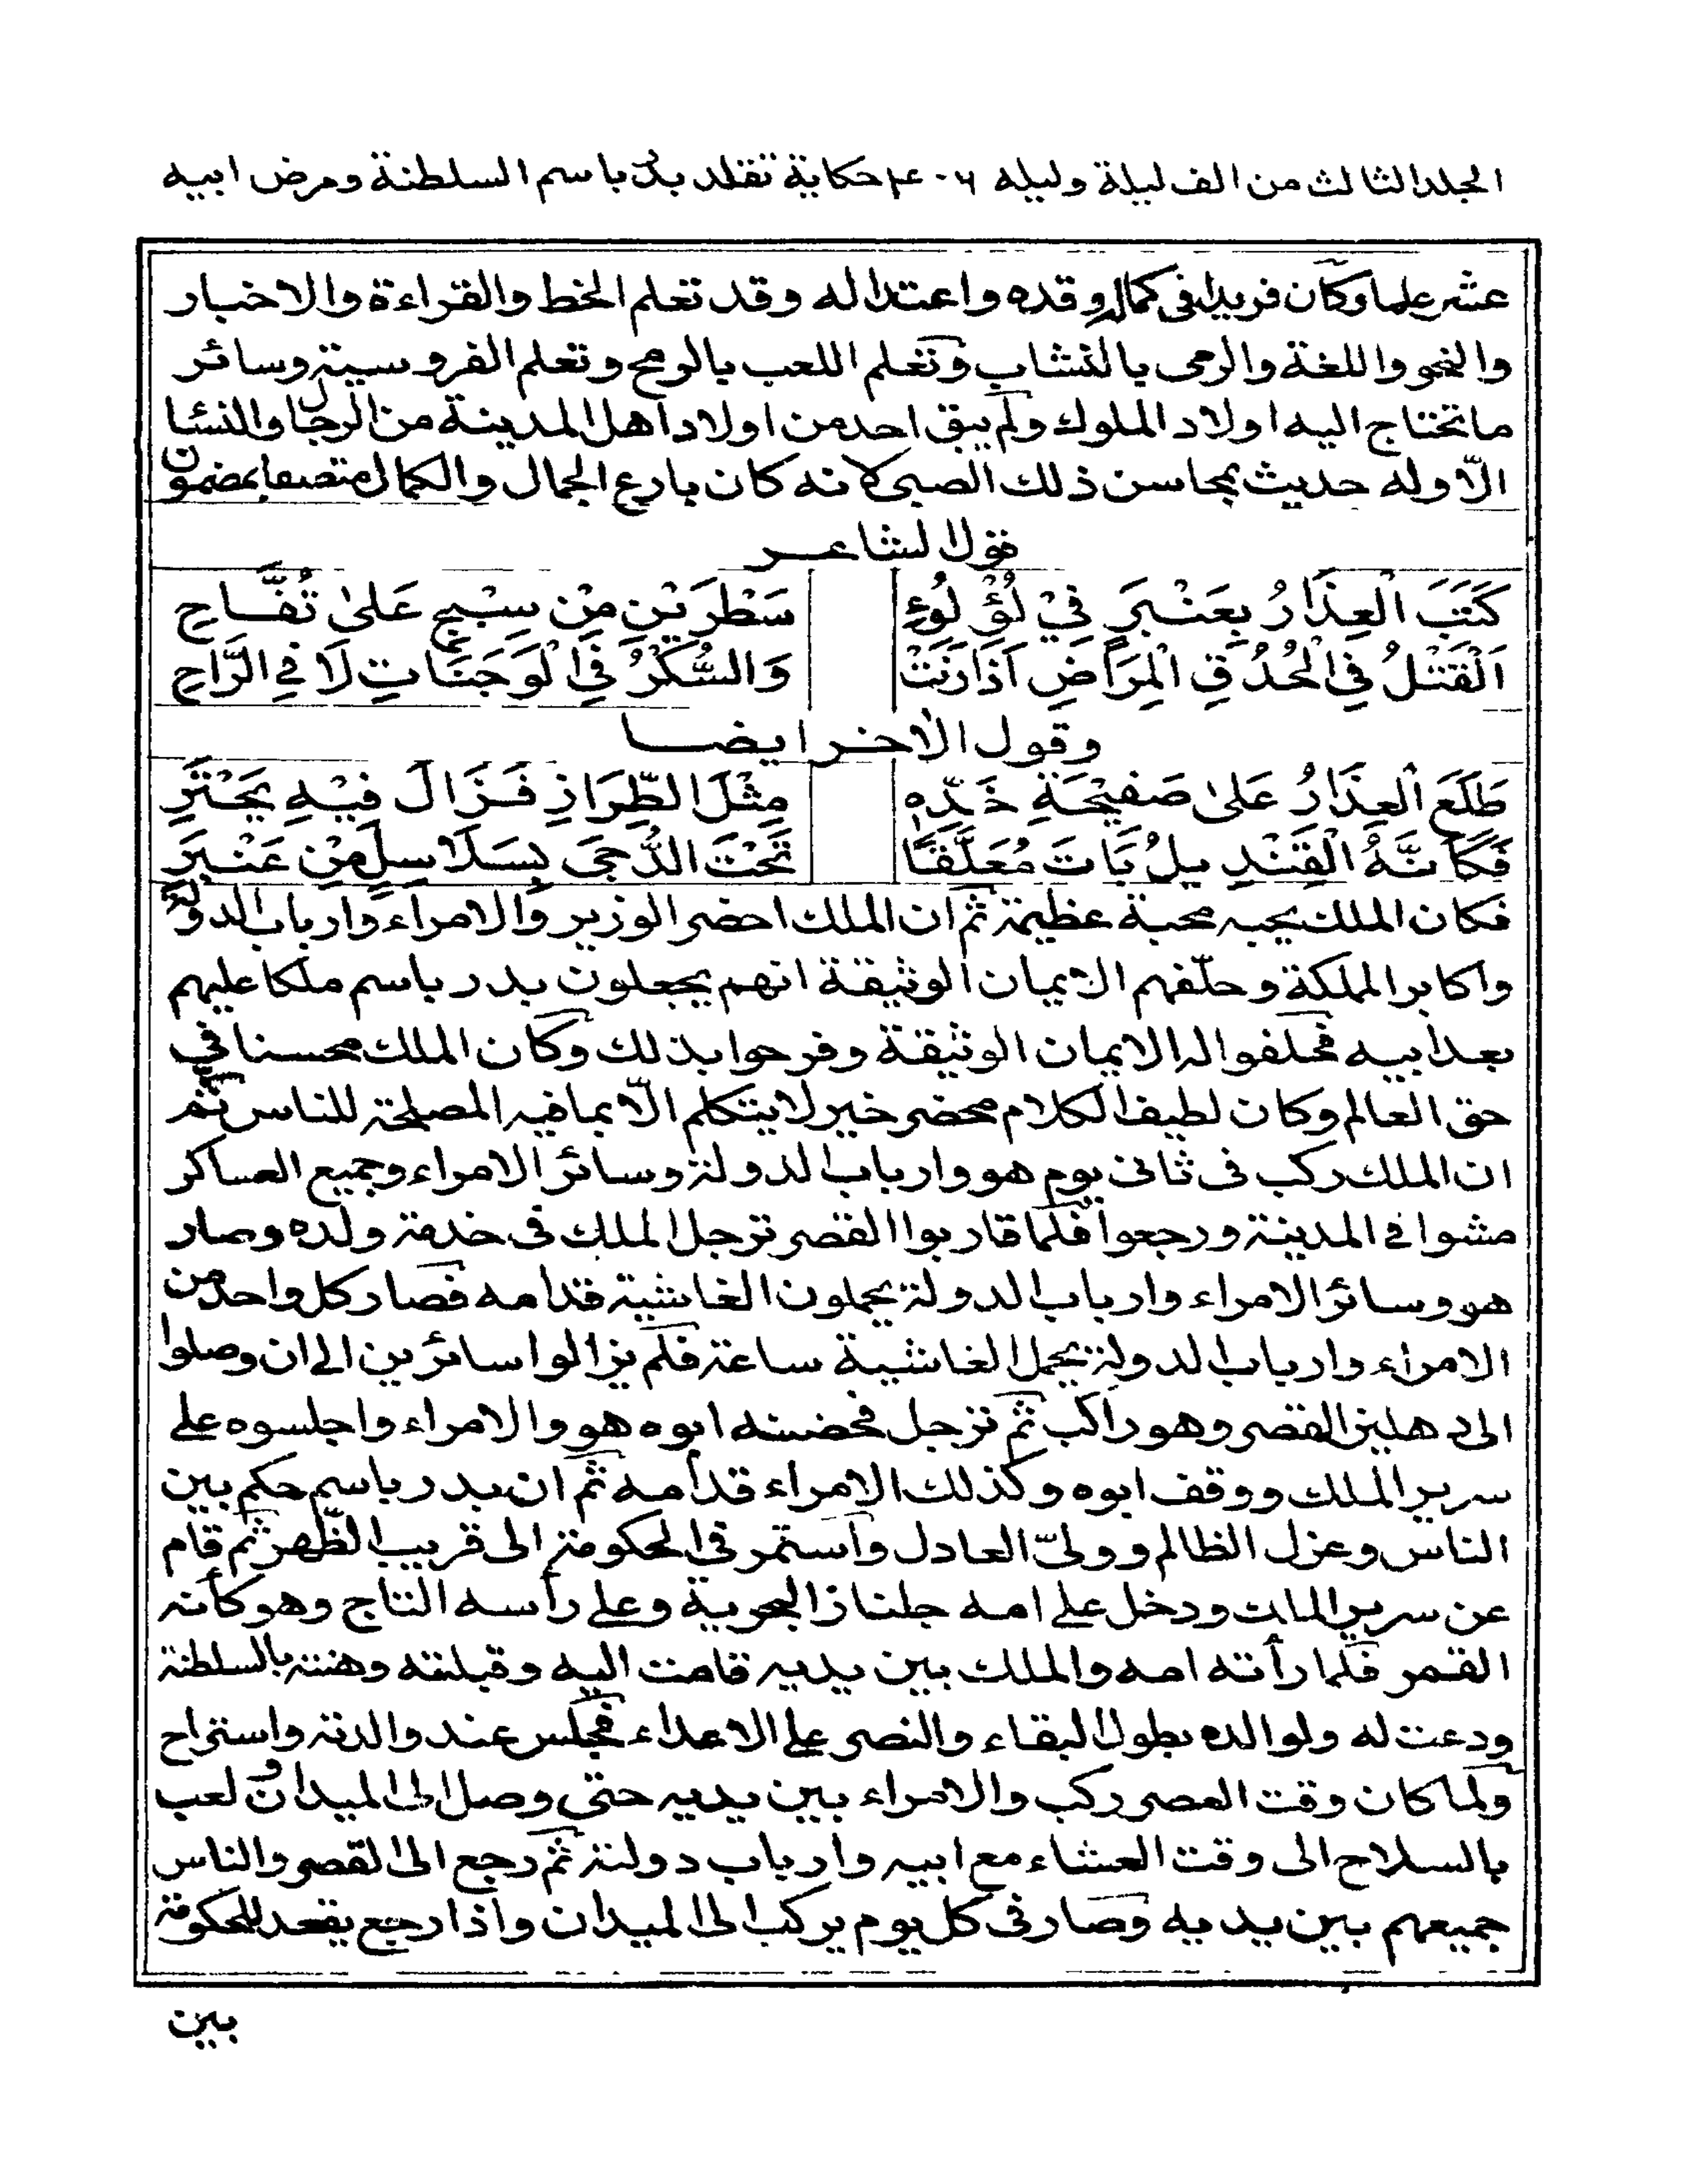 الجلد الثالث من الف ليلة وليله ٤٠٦ حكاية تقلد بدر باسم السلطنة ومرض ابيه
عشر علما وكان فريدا فى كماله وقده واعتداله وقد تعلم الخط والقراءة والاخبار
والنحو واللغة والرمى بالنشاب وتعلم اللعب بالرمح وتعلم الفروسية وسائر
ما تحتاج اليه اولاد الملوك ولم يبق احد من اولاد اهل المدينة من الرجال والنسا
الّا وله حديث بمحاسن ذلك الصبى لانه كان بارع الجمال والكمال متصفا بمضمون
قول الشاعر
كَتَبَ الْعِذَارُ بِعَنْبَرٍ فِيْ لُؤْلُوءٍ سَطْرَيْنِ مِنْ سِبْجٍ عَلىٰ تُفَّاحِ
اَلْقَتْلُ فِي الْحُدُقِ الْمِرَاضِ اَذَا رَنَتْ وَالسُّكْرُ فِي الْوَجَنَاتِ لَا فِي الرَّاحِ
وقول الاخر ايضا
طَلَعَ الْعِذَارُ عَلىٰ صَفِيْحَةِ خَدِّهٖ مِثْلَ الطِّرَازِ فَزَالَ فِيْهِ يَحْتَرِ
فَكَأَنَّهُ الْقَنْدِيلُ بَاتَ مُعَلَّقًا تَحْتَ الدُّجىَ بِسَلَاسِلٍ مِنْ عَنْبَرِ
فكان الملك يحبه محبة عظيمة ثم ان الملك احضر الوزير والامراء وارباب الدولة
واكابر المملكة وحلّفهم الايمان الوثيقة انهم يجعلون بدر باسم ملكا عليهم
بعد ابيه فحلفوا له الايمان الوثيقة وفرحوا بذلك وكان الملك محسنا في
حق العالم وكان لطيف الكلام محضر خير لا يتكلم الّا بما فيه المصلحة للناس ثم
ان الملك ركب فى ثانى يوم هو وارباب الدولة وسائر الامراء وجميع العساكر
مشوا في المدينة ورجعوا فلما قاربوا القصر ترجل الملك فى خدمة ولده وصار
هو وسائر الامراء وارباب الدولة يحملون الغاشية قدامه فصار كل واحد من
الامراء وارباب الدولة يحمل الغاشية ساعة فلم يزالوا سائرين الى ان وصلوا
الى دهليز القصر وهو راكب ثم ترجل فحضنه ابوه هو والامراء واجلسوه على
سرير الملك ووقف ابوه وكذلك الامراء قدامه ثم ان بدر باسم حكم بين
الناس وعزل الظالم وولىّ العادل واستمر في الحكومة الى قريب الظّهر ثم قام
عن سرير الملك ودخل على امه جلناز البحرية وعلى رأسه التاج وهو كأنه
القمر فلما رأته امه والملك بين يديه قامت اليه وقبلته وهنته بالسلطنة
ودعت له ولوالده بطول البقاء والنصر على الاعداء فجلس عند والدته واستراح
ولما كان وقت العصر ركب والامراء بين يديه حتى وصل الى الميدان ولعب
بالسلاح الى وقت العشاء مع ابيه وارباب دولته ثم رجع الى القصر والناس
جميعهم بين يديه وصار فى كل يوم يركب الى الميدان واذا رجع يقعد للحكومة
بين